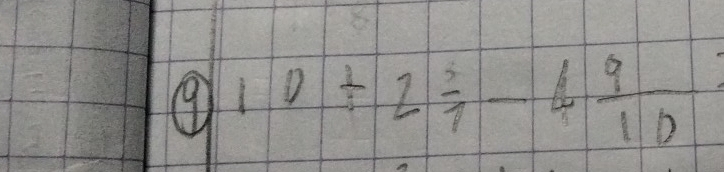 ⑨ 10 + 2 3/7 - 4 9/10 =